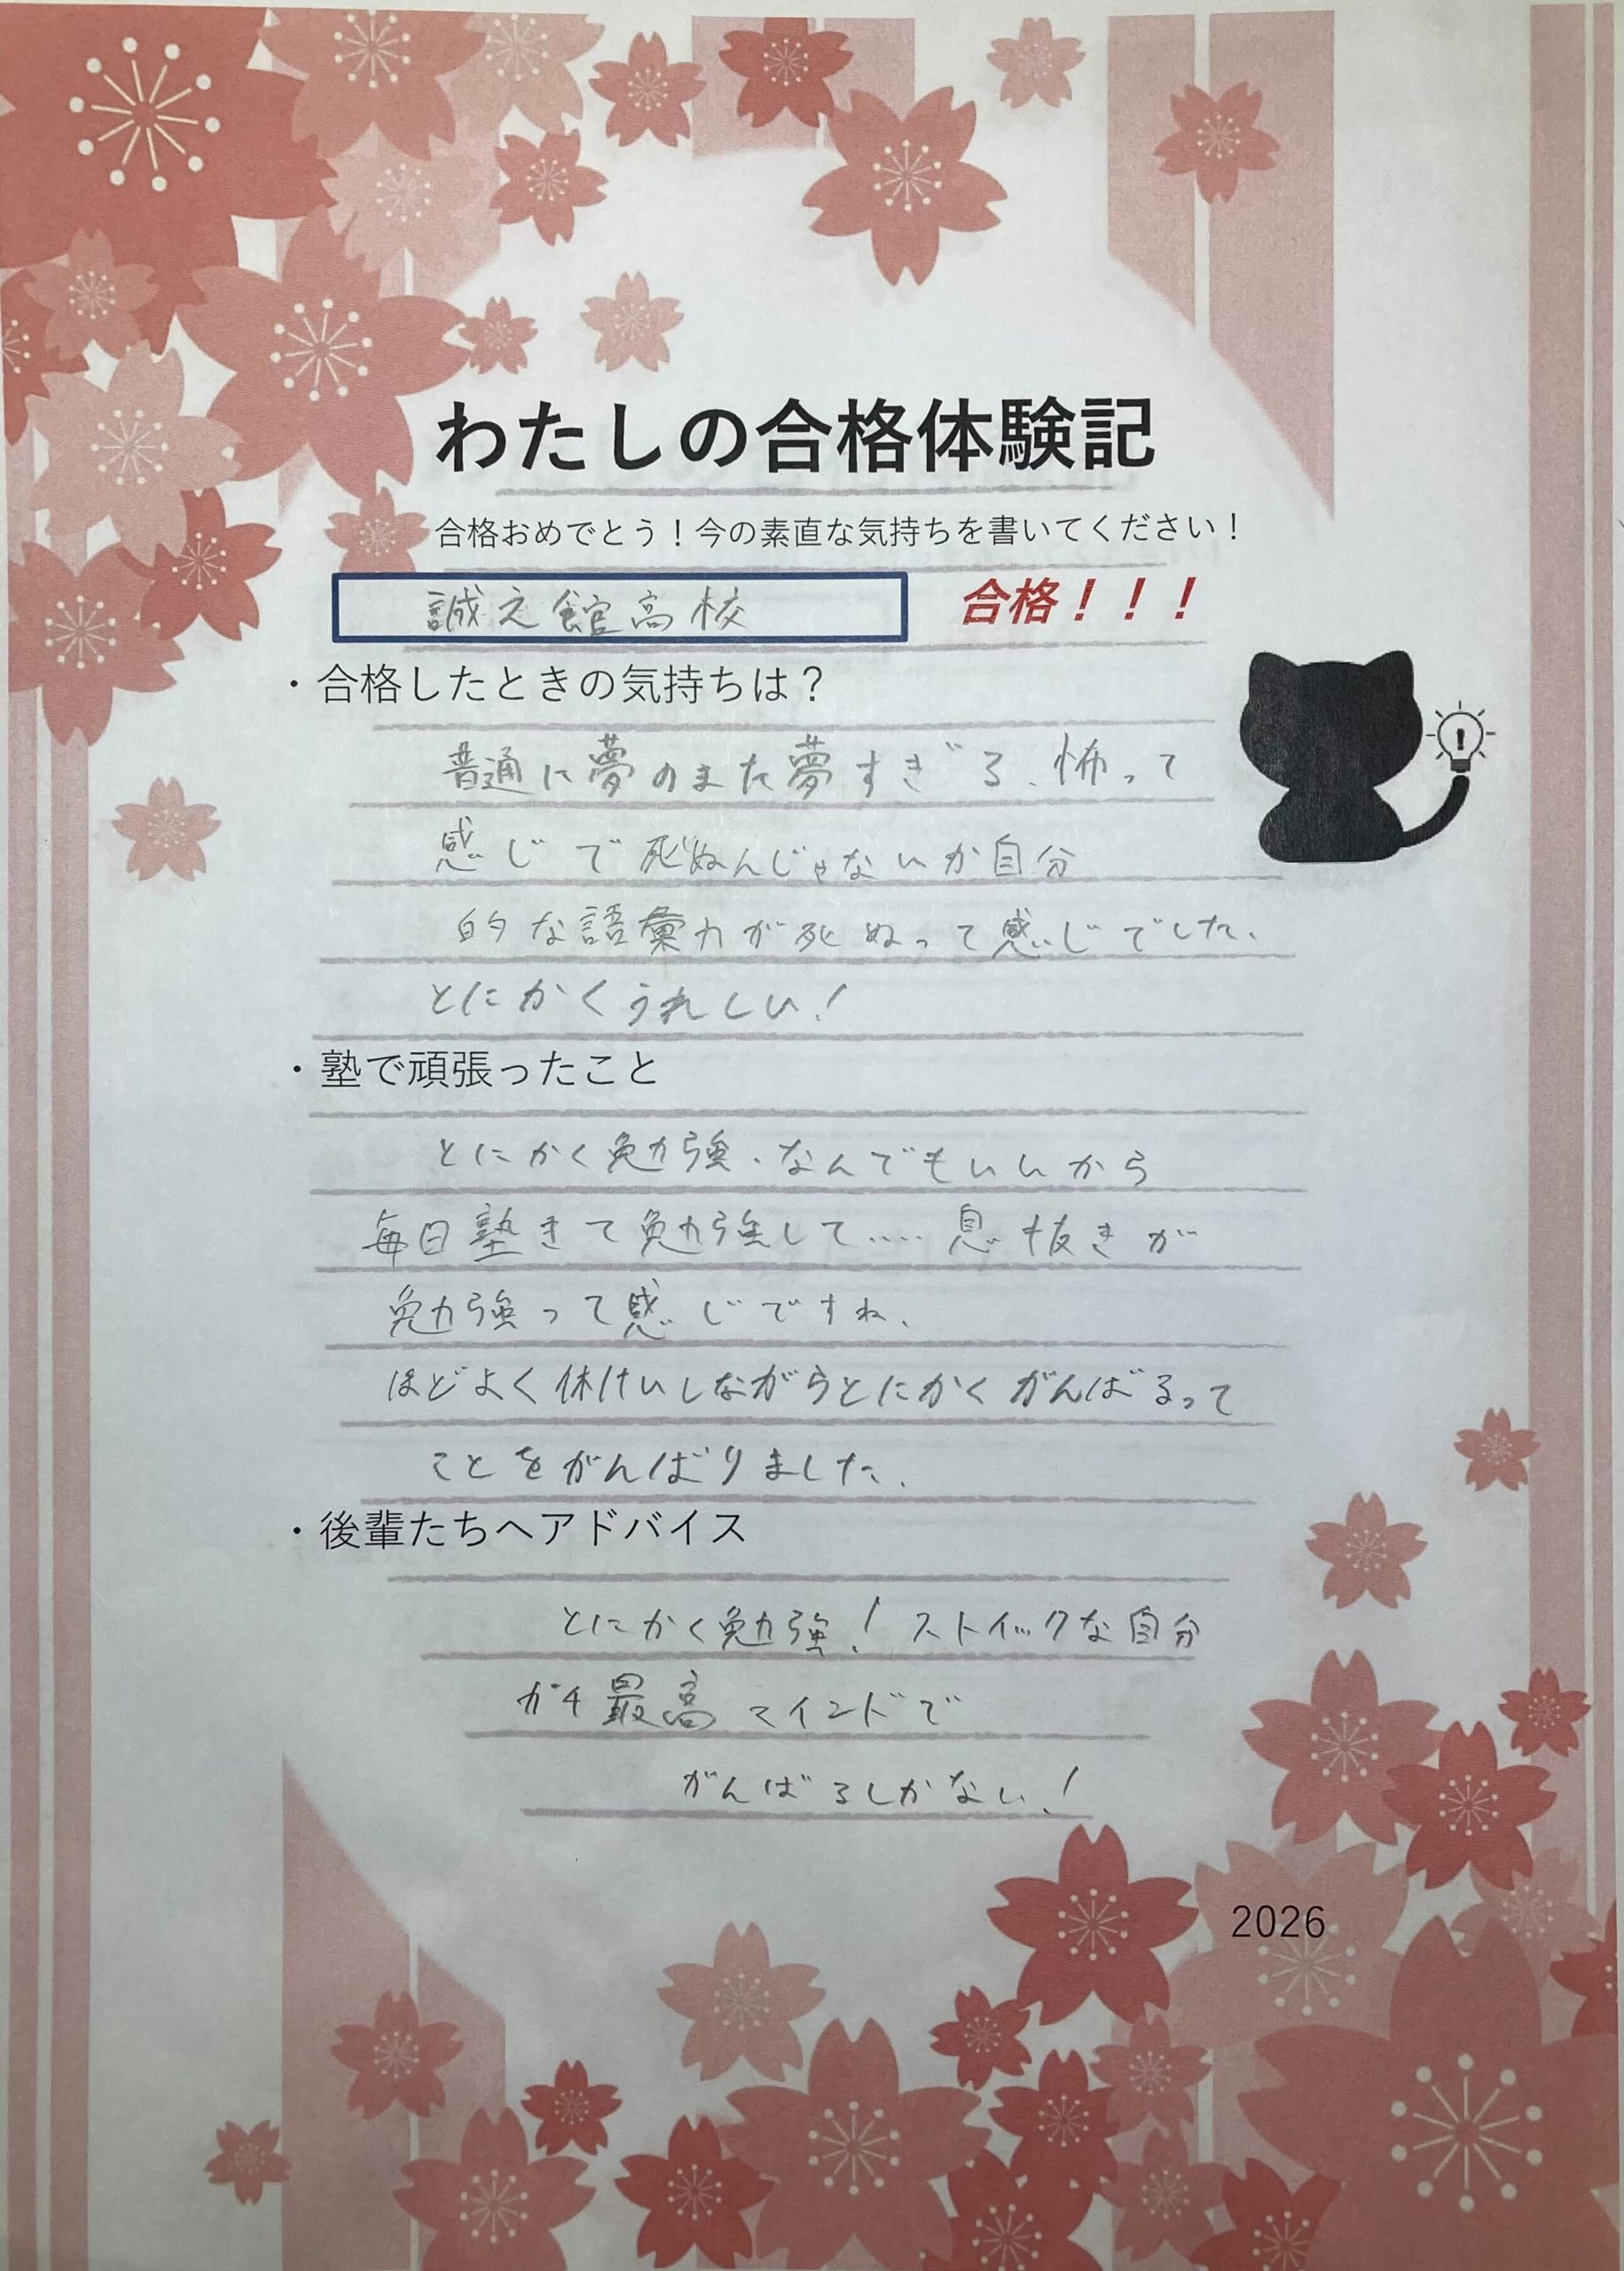 わたしの合格体験記
合格おめでとう！今の素直な気持ちを書いてください！
誠之館高校 合格！！！
・合格したときの気持ちは？
普通に夢のまた夢すぎる、怖って
感じで死ぬんじゃないか自分
的な語彙力が死ぬって感じでした、
とにかくうれしい！
・塾で頑張ったこと
とにかく勉強、なんでもいいから
毎日塾きて勉強して.... 息抜きが
勉強って感じですね、
ほどよく休けいしながらとにかくがんばるって
ことをがんばりました、
・後輩たちへアドバイス
とにかく勉強！ストイックな自分
ガチ最高マインドで
がんばるしかない！
2026